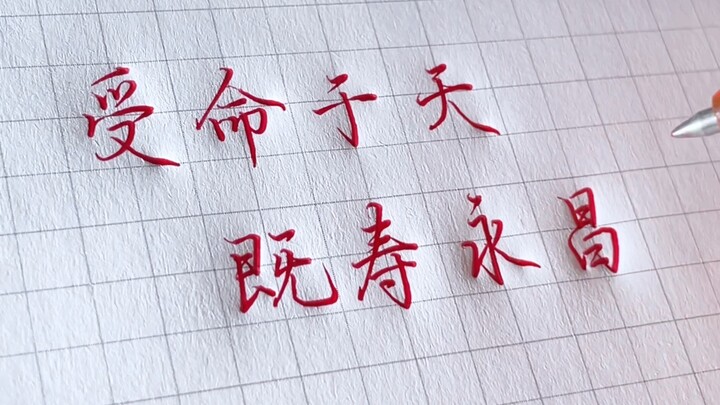 受命于天
既寿永昌